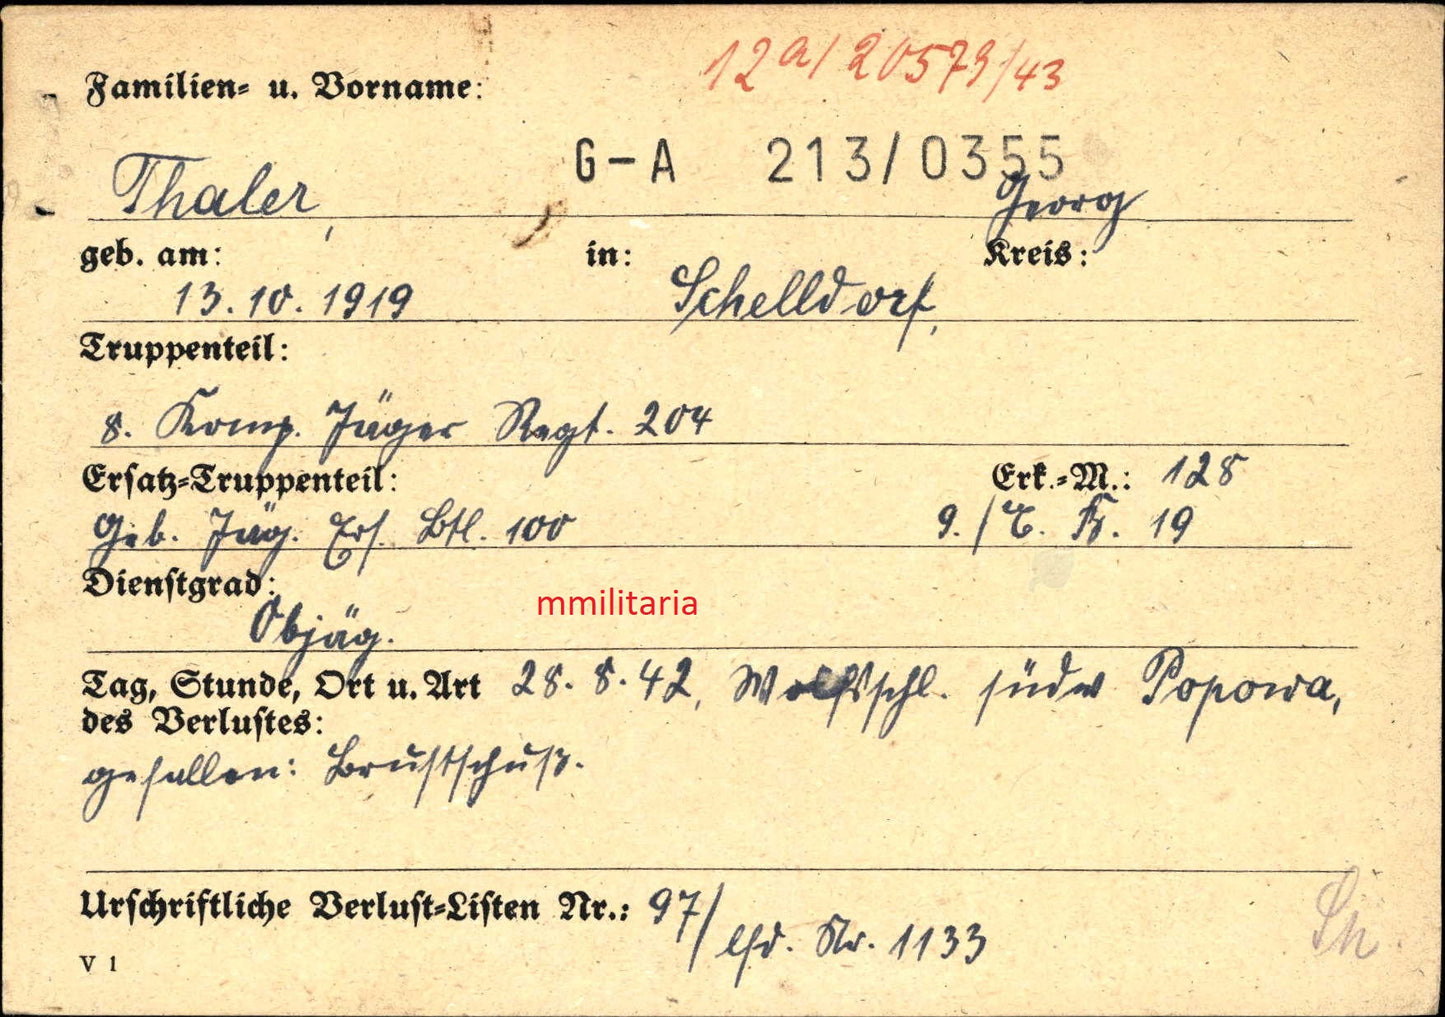 12a/20573/43
Familien- u. Vorname:
G-A 213/0355
Thaler, Georg
geb. am: in: Kreis:
13.10.1919 Schelldorf,
Truppenteil:
8. Komp. Jäger Regt. 204
Ersatz-Truppenteil: Erk.-M.: 128
Geb. Jäg. Ers. Btl. 100 9./ I. R. 19
Dienstgrad:
Objäg.
mmilitaria
Tag, Stunde, Ort u. Art 28.8.42, Wolfsschl. südw Popowa,
des Verlustes:
gefallen: Brustschuß.
Urschriftliche Verlust-Listen Nr.: 97/
lfd. Nr. 1133
V 1